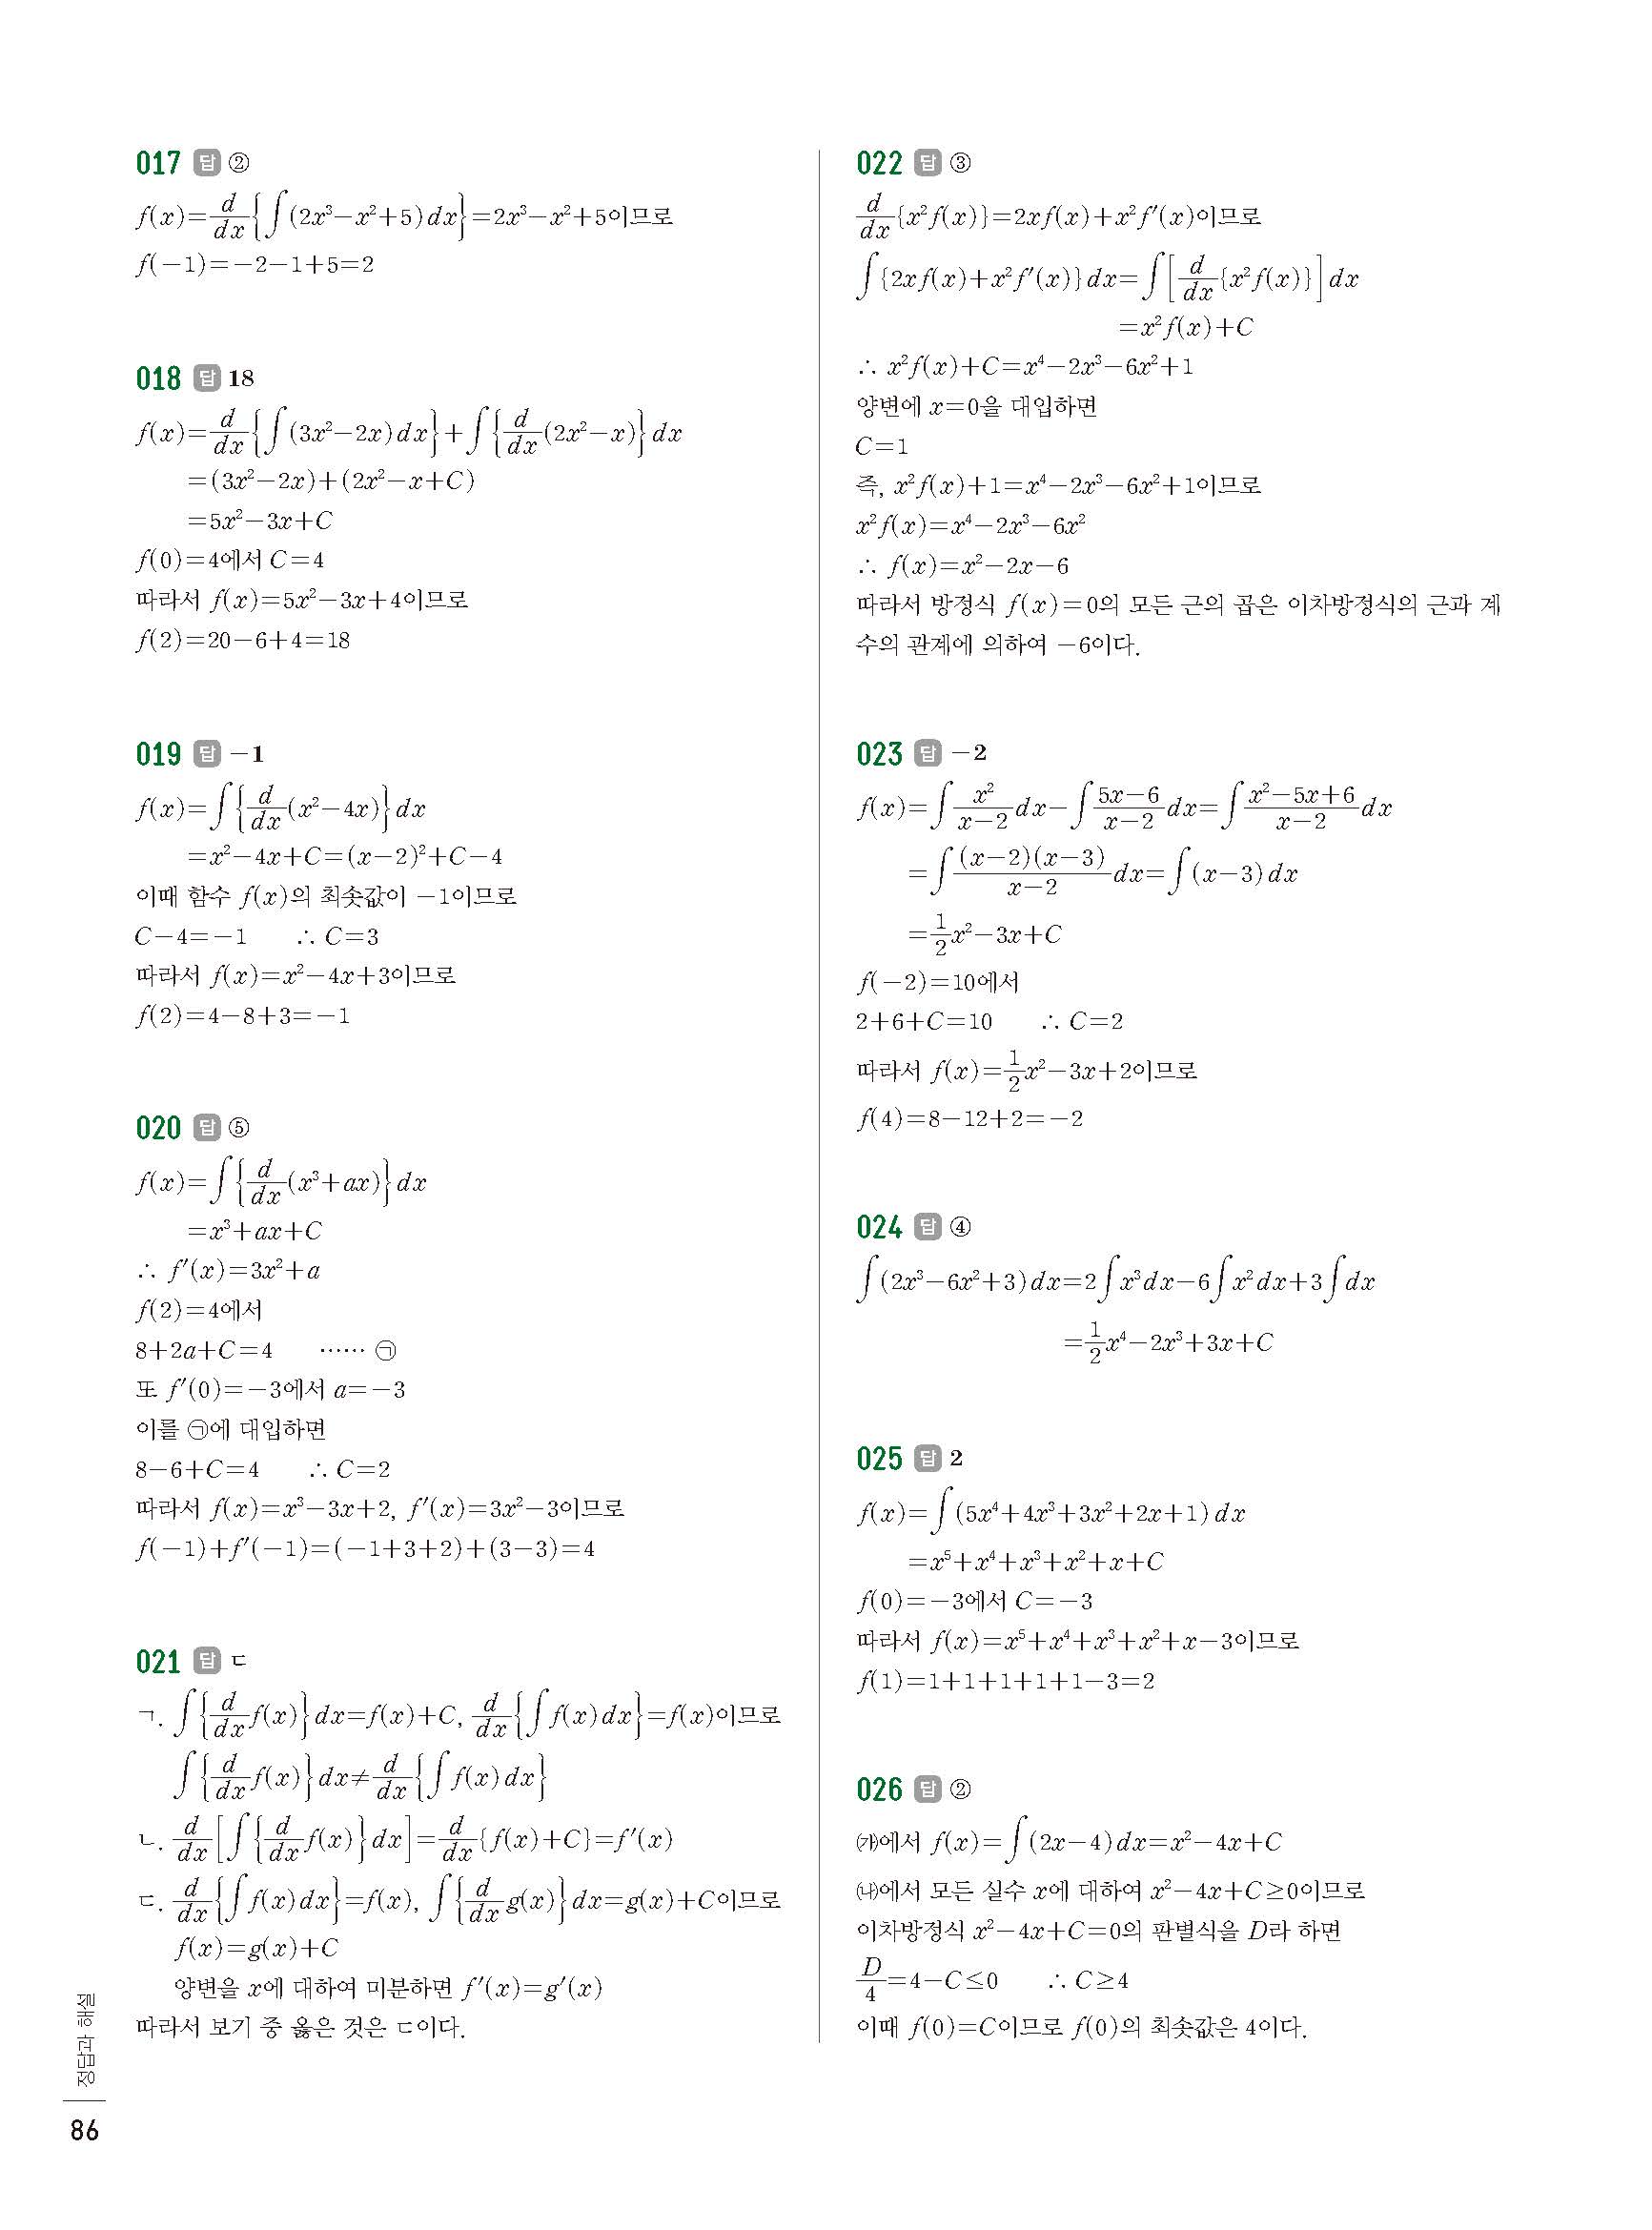 017 답 ②
f(x)=d/dx{∫(2x³-x²+5)dx}=2x³-x²+5이므로
f(-1)=-2-1+5=2
018 답 18
f(x)=d/dx{∫(3x²-2x)dx}+∫{d/dx(2x²-x)}dx
=(3x²-2x)+(2x²-x+C)
=5x²-3x+C
f(0)=4에서 C=4
따라서 f(x)=5x²-3x+4이므로
f(2)=20-6+4=18
019 답 -1
f(x)=∫{d/dx(x²-4x)}dx
=x²-4x+C=(x-2)²+C-4
이때 함수 f(x)의 최솟값이 -1이므로
C-4=-1 ∴ C=3
따라서 f(x)=x²-4x+3이므로
f(2)=4-8+3=-1
020 답 ⑤
f(x)=∫{d/dx(x³+ax)}dx
=x³+ax+C
∴ f′(x)=3x²+a
f(2)=4에서
8+2a+C=4 …… ㉠
또 f′(0)=-3에서 a=-3
이를 ㉠에 대입하면
8-6+C=4 ∴ C=2
따라서 f(x)=x³-3x+2, f′(x)=3x²-3이므로
f(-1)+f′(-1)=(-1+3+2)+(3-3)=4
021 답 ㄷ
ㄱ. ∫{d/dx f(x)}dx=f(x)+C, d/dx{∫f(x)dx}=f(x)이므로
∫{d/dx f(x)}dx≠d/dx{∫f(x)dx}
ㄴ. d/dx[∫{d/dx f(x)}dx]=d/dx{f(x)+C}=f′(x)
ㄷ. d/dx{∫f(x)dx}=f(x), ∫{d/dx g(x)}dx=g(x)+C이므로
f(x)=g(x)+C
양변을 x에 대하여 미분하면 f′(x)=g′(x)
따라서 보기 중 옳은 것은 ㄷ이다.
022 답 ③
d/dx{x²f(x)}=2xf(x)+x²f′(x)이므로
∫{2xf(x)+x²f′(x)}dx=∫[d/dx{x²f(x)}]dx
=x²f(x)+C
∴ x²f(x)+C=x⁴-2x³-6x²+1
양변에 x=0을 대입하면
C=1
즉, x²f(x)+1=x⁴-2x³-6x²+1이므로
x²f(x)=x⁴-2x³-6x²
∴ f(x)=x²-2x-6
따라서 방정식 f(x)=0의 모든 근의 곱은 이차방정식의 근과 계
수의 관계에 의하여 -6이다.
023 답 -2
f(x)=∫x²/(x-2) dx-∫(5x-6)/(x-2) dx=∫(x²-5x+6)/(x-2) dx
=∫(x-2)(x-3)/(x-2) dx=∫(x-3)dx
=1/2x²-3x+C
f(-2)=10에서
2+6+C=10 ∴ C=2
따라서 f(x)=1/2x²-3x+2이므로
f(4)=8-12+2=-2
024 답 ④
∫(2x³-6x²+3)dx=2∫x³dx-6∫x²dx+3∫dx
=1/2x⁴-2x³+3x+C
025 답 2
f(x)=∫(5x⁴+4x³+3x²+2x+1)dx
=x⁵+x⁴+x³+x²+x+C
f(0)=-3에서 C=-3
따라서 f(x)=x⁵+x⁴+x³+x²+x-3이므로
f(1)=1+1+1+1+1-3=2
026 답 ②
㈎에서 f(x)=∫(2x-4)dx=x²-4x+C
㈏에서 모든 실수 x에 대하여 x²-4x+C≥0이므로
이차방정식 x²-4x+C=0의 판별식을 D라 하면
D/4=4-C≤0 ∴ C≥4
이때 f(0)=C이므로 f(0)의 최솟값은 4이다.
정답과 해설
86